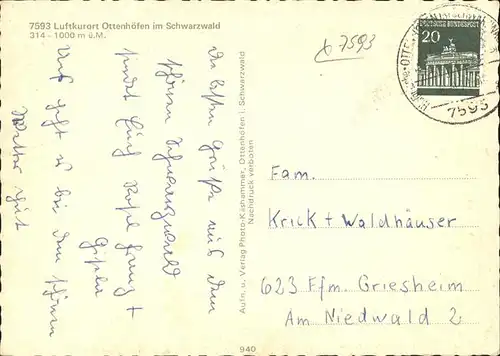 7593 Luftkurort Ottenhöfen im Schwarzwald
314 - 1000 m ü.M.
7593
20
DEUTSCHE BUNDESPOST
7593
Die besten Grüße aus dem
schönen Schwarzwald
sendet
Gisela
Uns geht es bei dem schönen
Wetter gut
Aufn. u. Verlag Photo-Kashammer, Ottenhöfen i. Schwarzwald
Nachdruck verboten
Fam.
Krick + Waldhäuser
623 Ffm. Griesheim
Am Niedwald 2
940